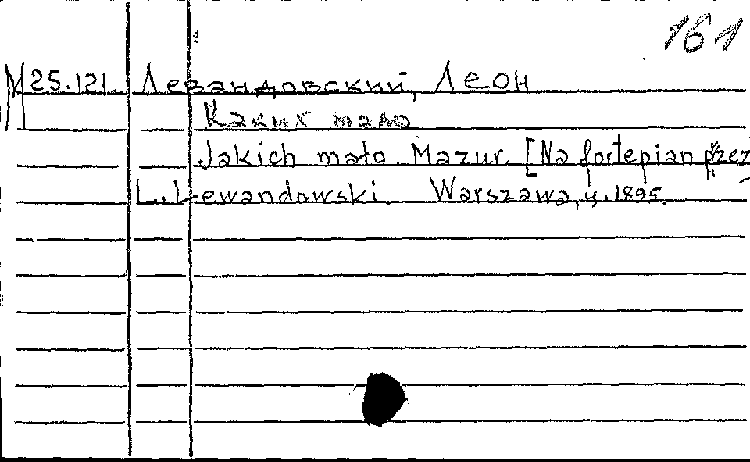 161
М 25.121. Левандовский, Леон
Каких мало
Jakich mało. Mazur. [Na fortepian przez
L. Lewandowski. Warszawa, ц. 1895.